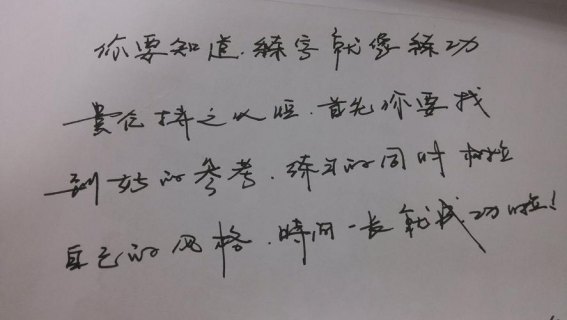 你要知道.练字就像练功
贵在持之以恒.首先你要找
到好的参考.练习的同时树立
自己的风格.時间一长就成功啦!